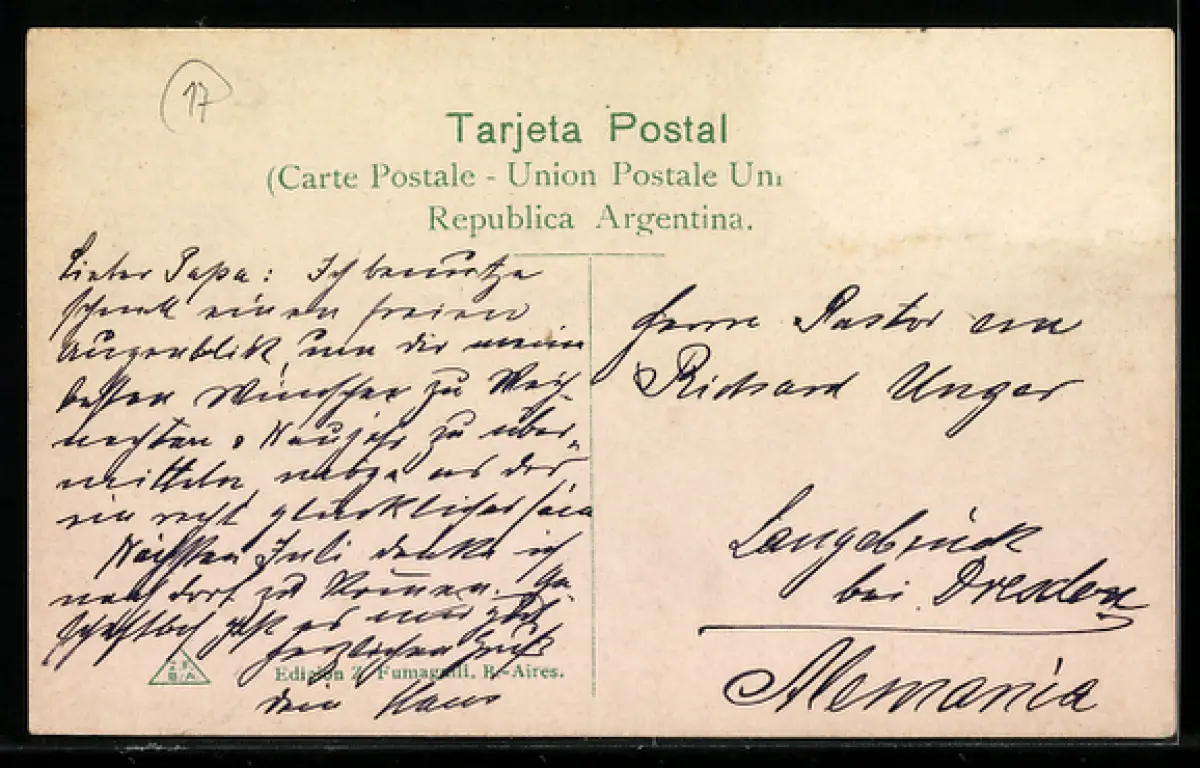 17
Tarjeta Postal
(Carte Postale - Union Postale Uni
Republica Argentina.
Lieber Papa: Ich benutze
schnell einen freien
Augenblik um dir meine
besten Wünsche zu Weih-
nachten & Neujahr zu über-
mitteln möge es dir
ein recht glückliches sein
Nächsten Juli denke ich
nach dort zu kommen. Ge-
schäftlich geht es mir gut
herzlichen Gruß
dein Hans
Edizion Z. Fumagalli, B.-Aires.
Herrn Pastor em
Richard Unger
Langebrück
bei Dresden
Alemania